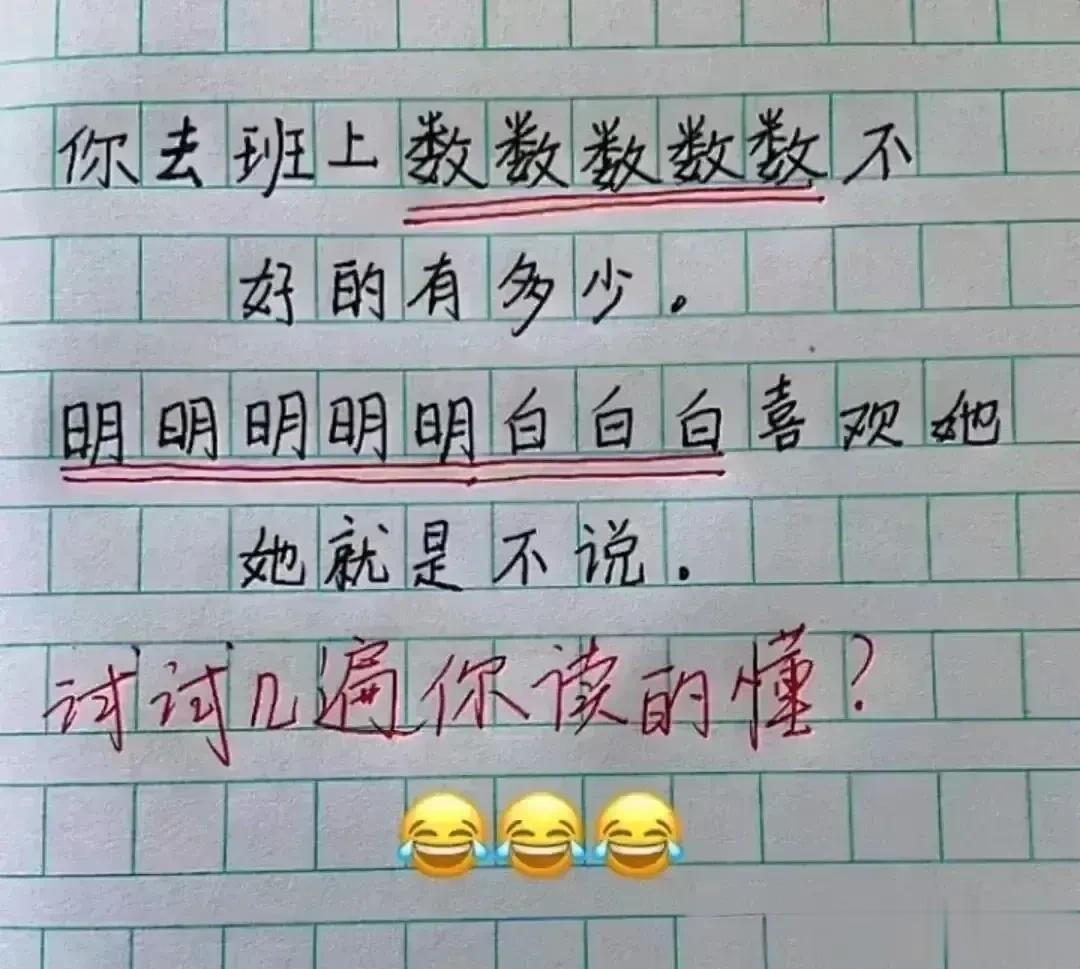 你去班上数数数数数不
好的有多少。
明明明明明白白白喜欢她
她就是不说.
试试几遍你读的懂?